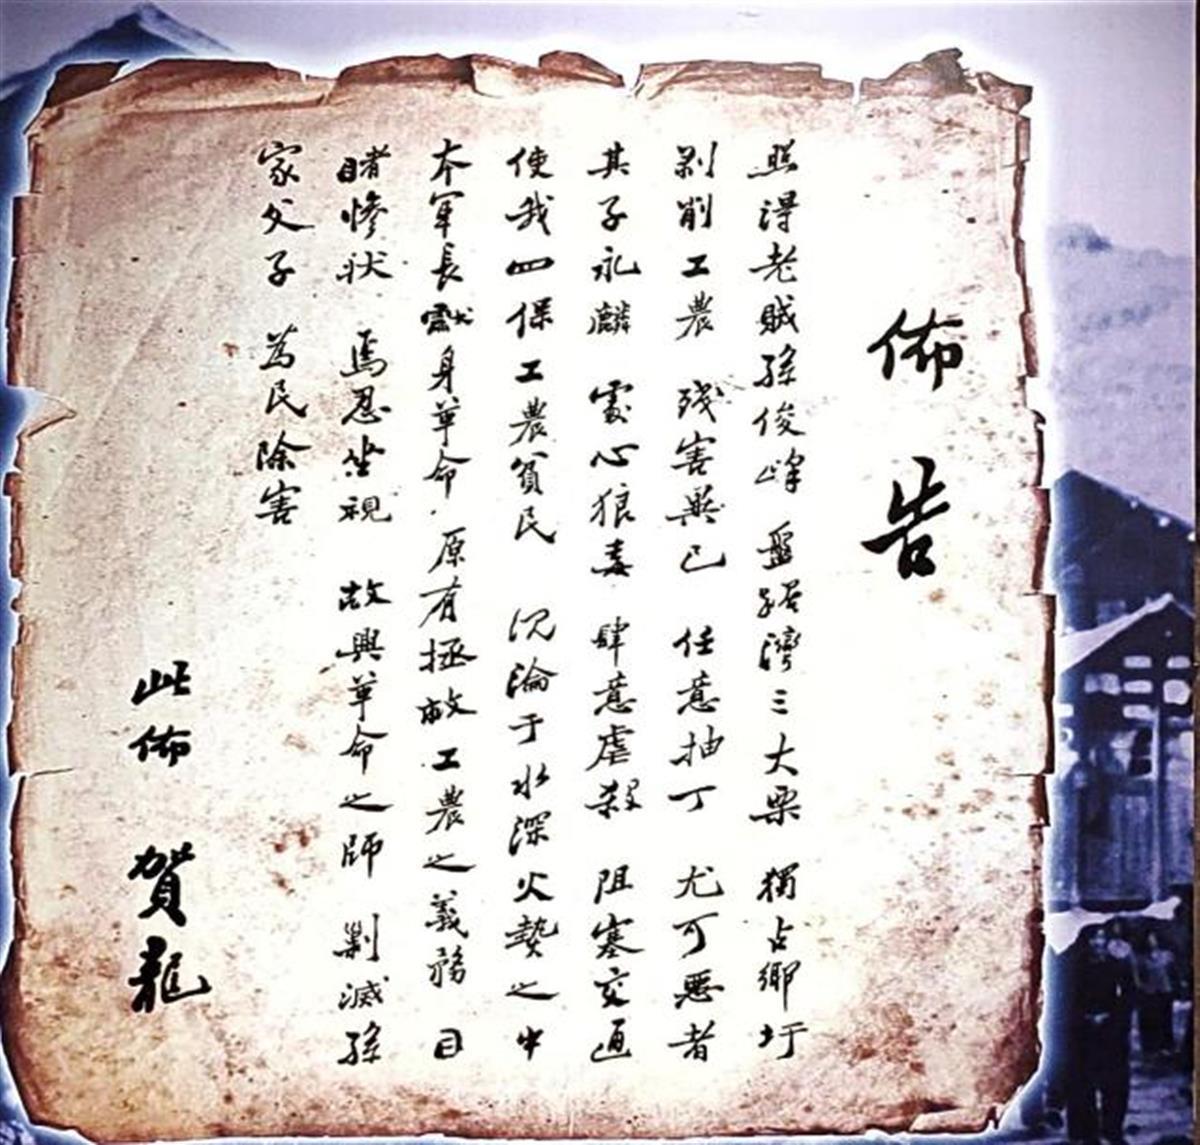 佈告
照得老贼孫俊峰 盤踞灣三大栗 獨占鄉圩
剥削工農 残害無已 任意抽丁 尤可恶者
其子永麟 蛮心狼毒 肆意虐殺 阻塞交通
使我四保工農貧民 沉淪于水深火熱之中
本軍長獻身革命 原有拯救工農之義務 目
睹惨狀 焉忍坐視 故興革命之師 剿滅孫
家父子 為民除害
此佈 賀龍